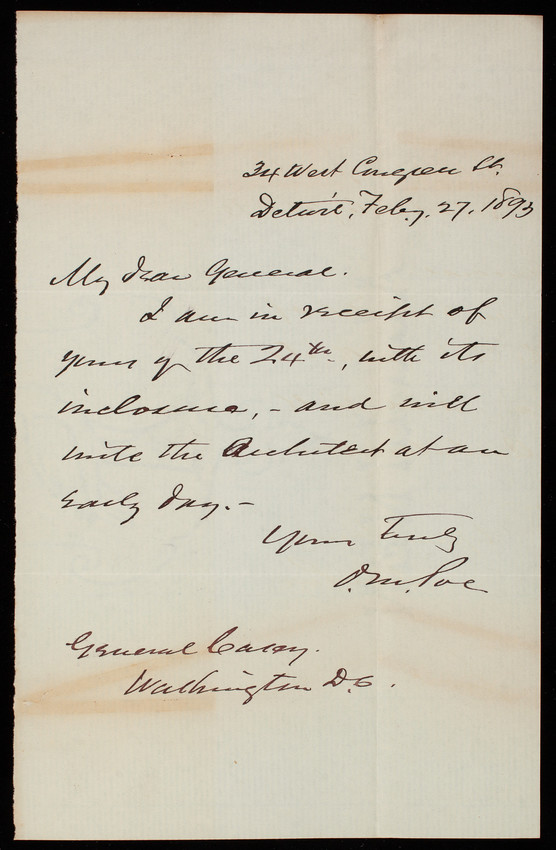 34 West Congress St.
Detroit, Feby. 27, 1893
My dear General.
I am in receipt of
yours of the 24th, with its
inclosure, - and will
write the Architect at an
early day. -
Yours Truly
O. M. Poe
General Casey.
Washington D.C.